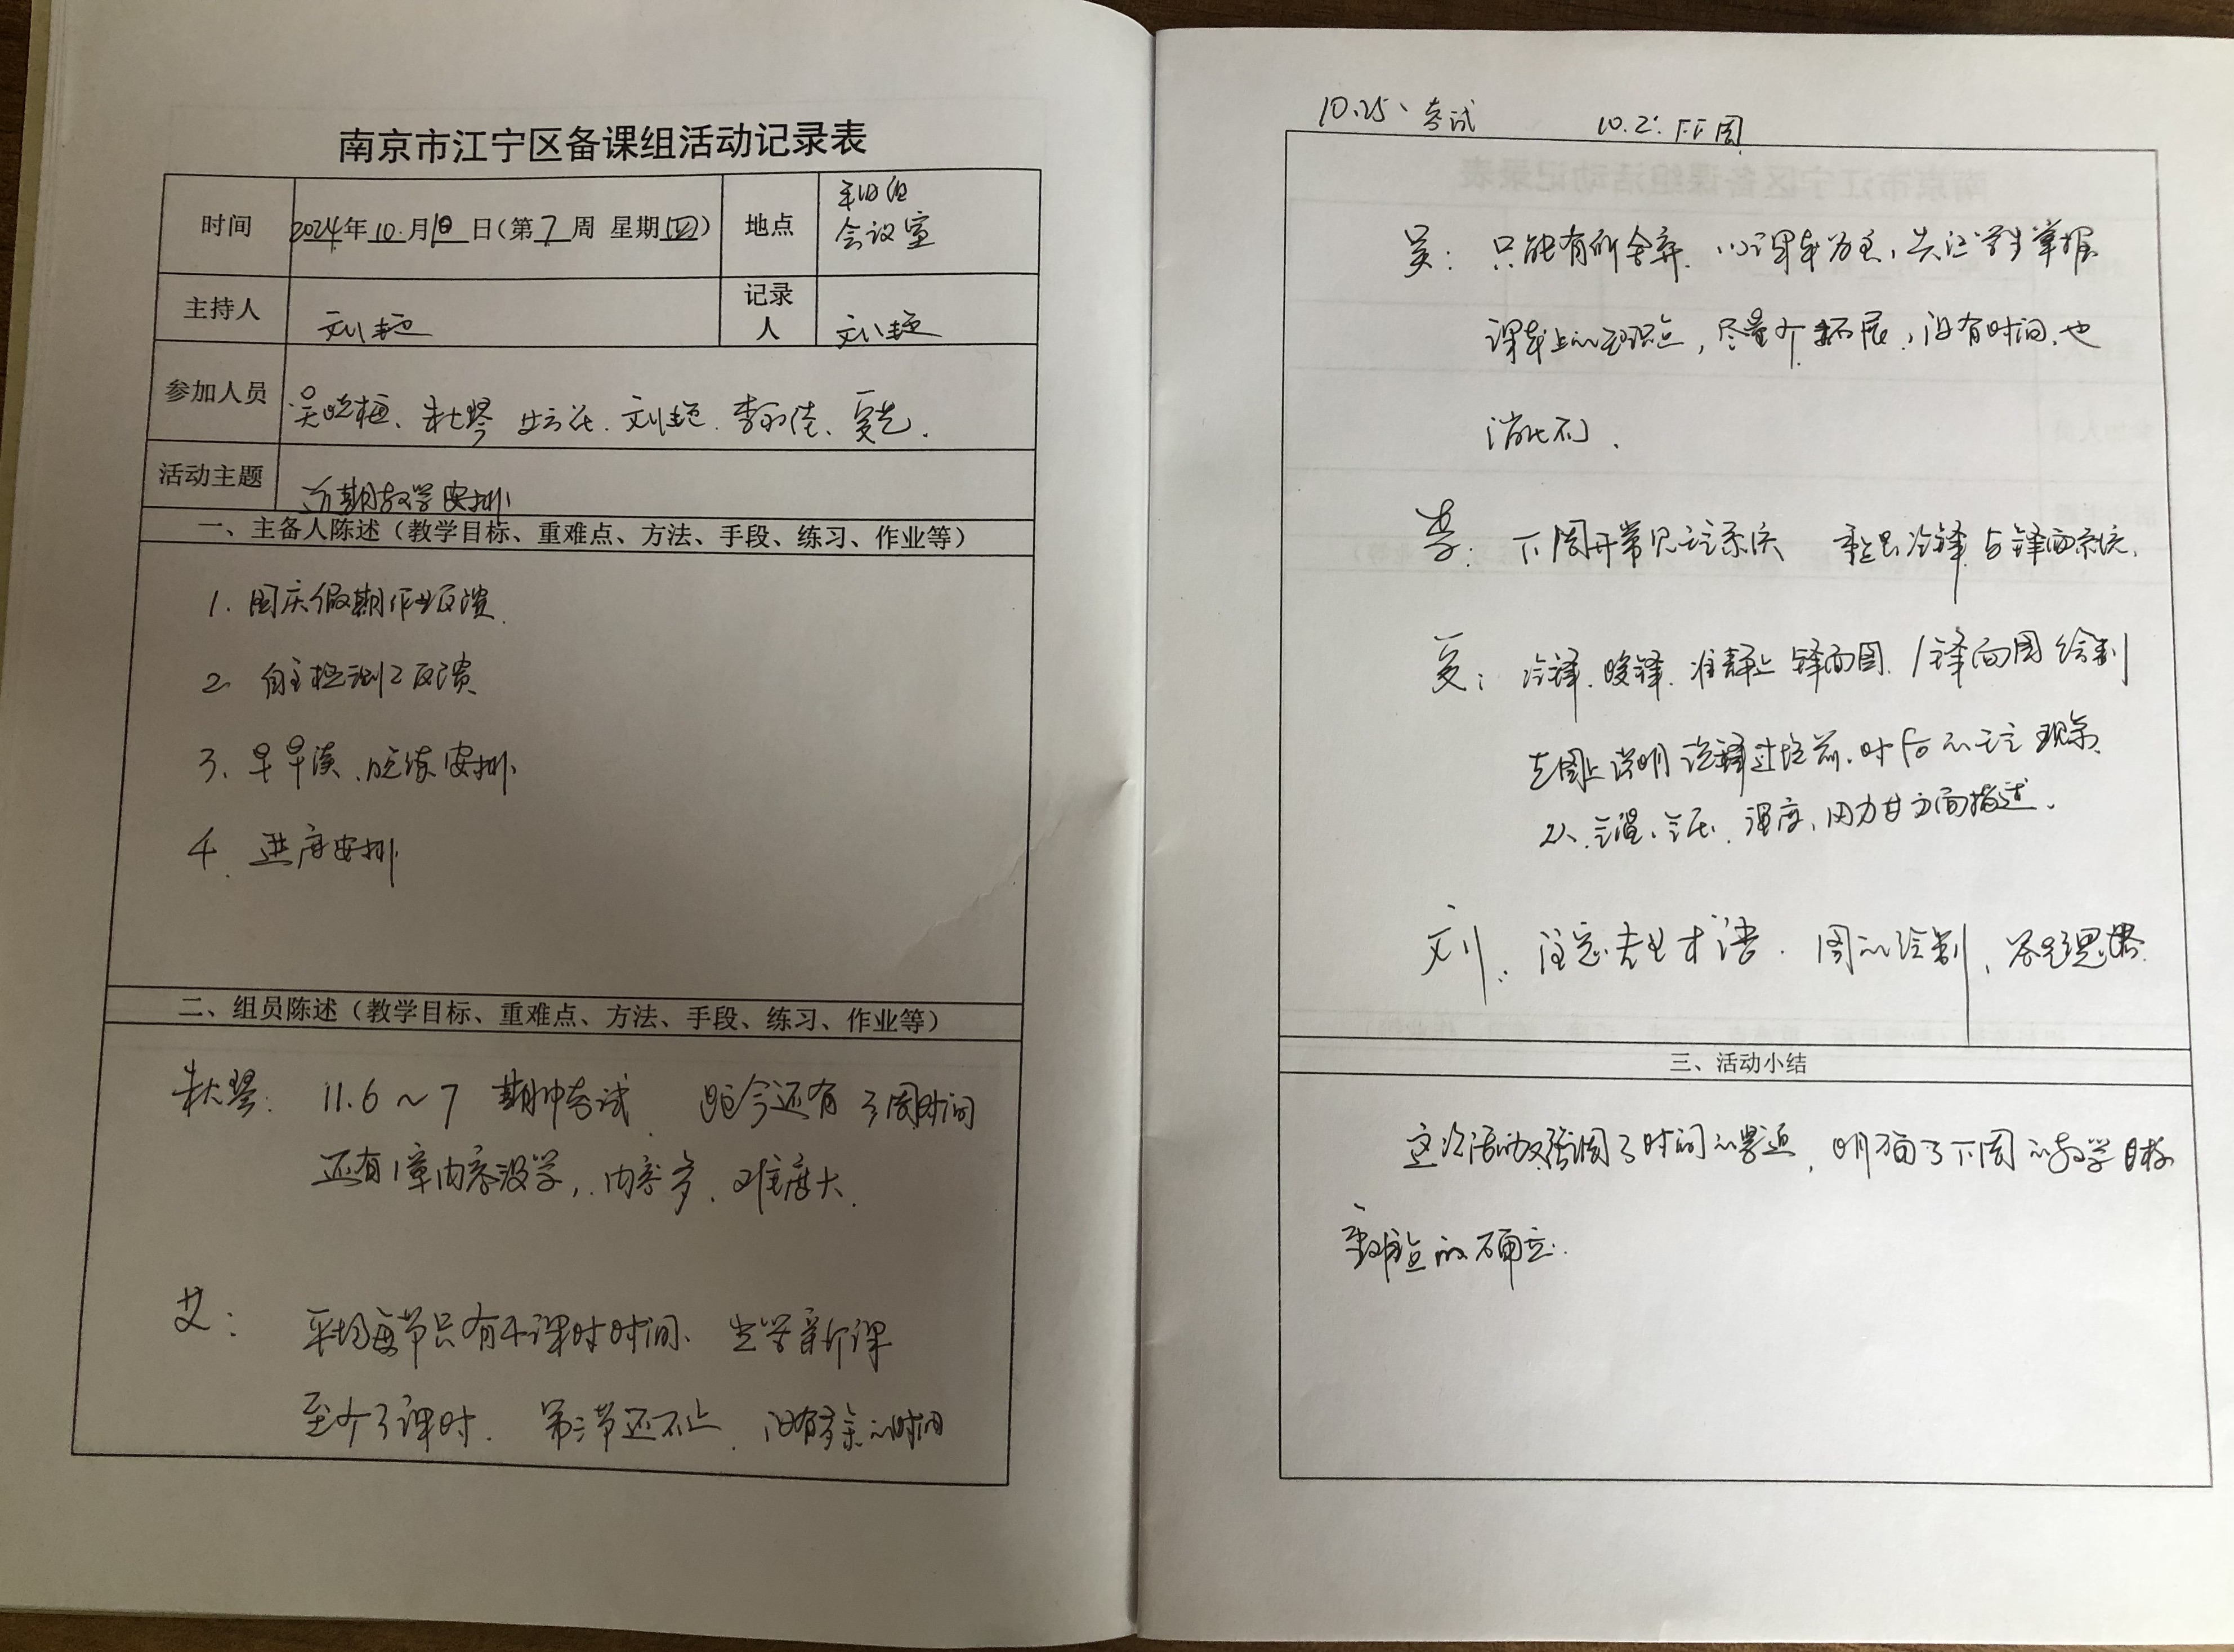 南京市江宁区备课组活动记录表
时间 2024年10月10日(第7周 星期四) 地点 会议室
主持人 刘艳 记录人 刘艳
参加人员 吴晓梅、朱大琴 刘艳、李 夏艺.
活动主题 近期教学安排
一、主备人陈述(教学目标、重难点、方法、手段、练习、作业等)
1. 国庆假期作业反馈
2. 自主检测2反馈
3. 早早读、晚读安排
4. 进度安排
二、组员陈述(教学目标、重难点、方法、手段、练习、作业等)
朱大琴: 11.6~7 期中考试 距今还有3周时间
还有1章内容没学, 内容多、难度大.
艾: 平均每节只有4课时时间、 学新课
至少3课时. 第三节还不止、没有多余的时间
10.25、考试 10.2: 周
吴: 只能有所舍弃. 以课本为主, 先让学生掌握
课本上的知识点, 尽量少拓展, 没有时间、也
消化不了.
李: 下周开常见天气系统 重点是冷锋与锋面系统.
夏: 冷锋、暖锋、准静止锋面图、1锋面图绘制
在图上说明该锋过境前、时、后的天气现象
以、气温、气压、湿度、风力等方面描述.
刘: 注意专业术语. 图的绘制、答题思路.
三、活动小结
这次活动强调了时间的紧迫, 明确了下周的教学目标
重难点的确立.